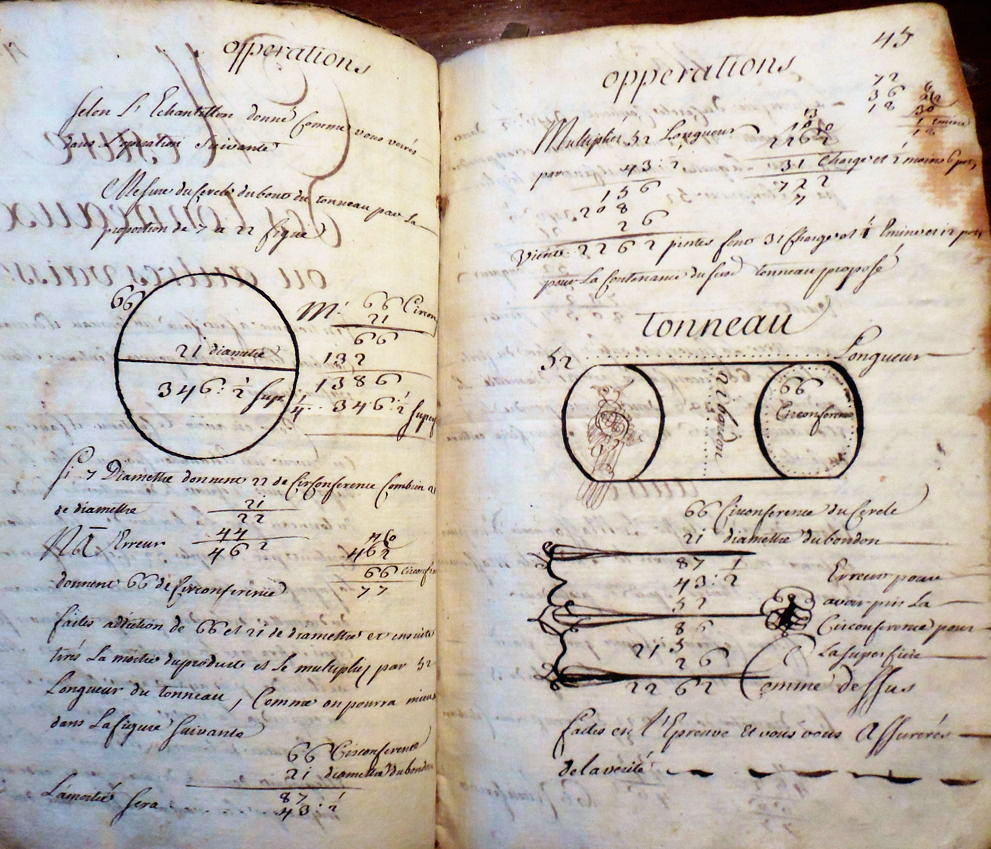 opperations
Selon L'Echantillon donné Comme vous verrés
dans L'operation Suivante
Mesure du Cercle du bout du tonneau par La
proportion de 7 a 22 figuré
66
21 diametre
346: 1/2 Supe
M. 66 Circon
21
66
132
1386
1/4 346: 1/2 Super
Si 7 Diamettre donnent 22 de Circonference Combien 21
de diamettre
21
22
Erreur
44
462
462
66 Circonfer
donnent 66 de Circonference
77
faites adiction de 66 et 21 de diamettre et ensuite
tirés La moitié du products et le multipliés par 52
Longueur du tonneau, Comme on pourra mieux
dans La figure Suivante
66 Circonference
21 diamettre du bondon
La moitié Sera
87
43: 1/2
45
opperations
72
36
18
Multiplier 52 Longueur
par 43: 1/2
156
208
26
2262
31 Charge et 2 moins 6 pots
722
7
Vient 2262 pintes font 31 Charge et 1 Emine et 12 pots
pour La Contenance du susd tonneau proposé
tonneau
52
Longueur
21 bondon
66
Circonference
66 Circonference du Cercle
21 diamettre du bondon
87
43: 1/2
52
86
215
26
2262
Erreur pour
avoir pris La
Circonference pour
La superficie
Comme dessus
faites en l'Epreuve et vous vous Assurerés
de la verité